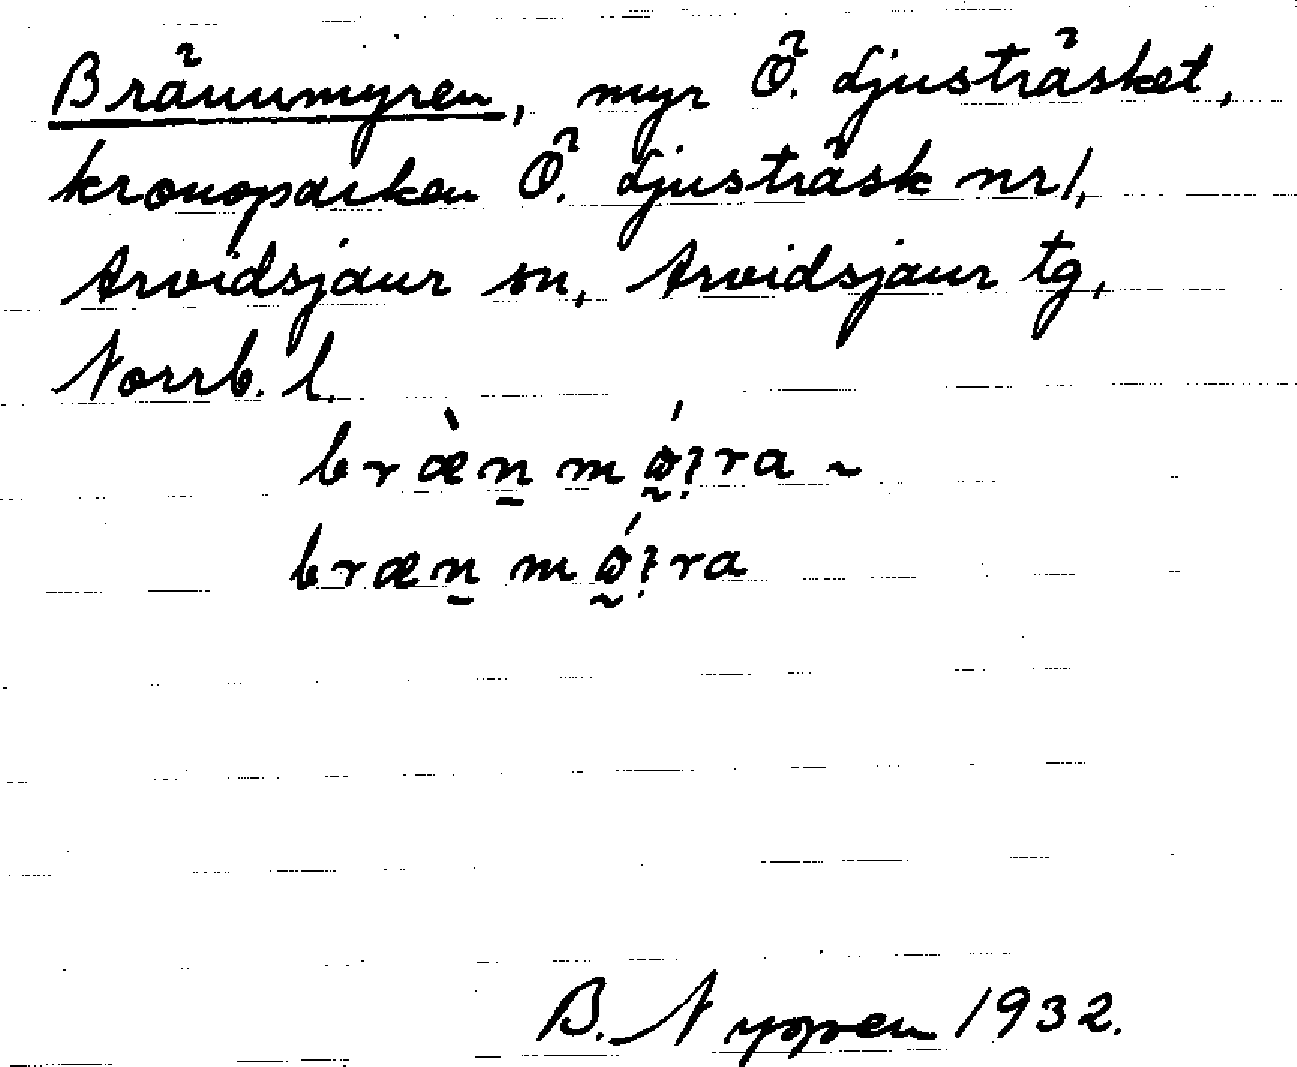 Brännmyren, myr Ö. Ljusträsket,
kronoparken Ö. Ljusträsk nr 1,
Arvidsjaur sn, Arvidsjaur tg,
Norrb. l.
B. Nyppen 1932.